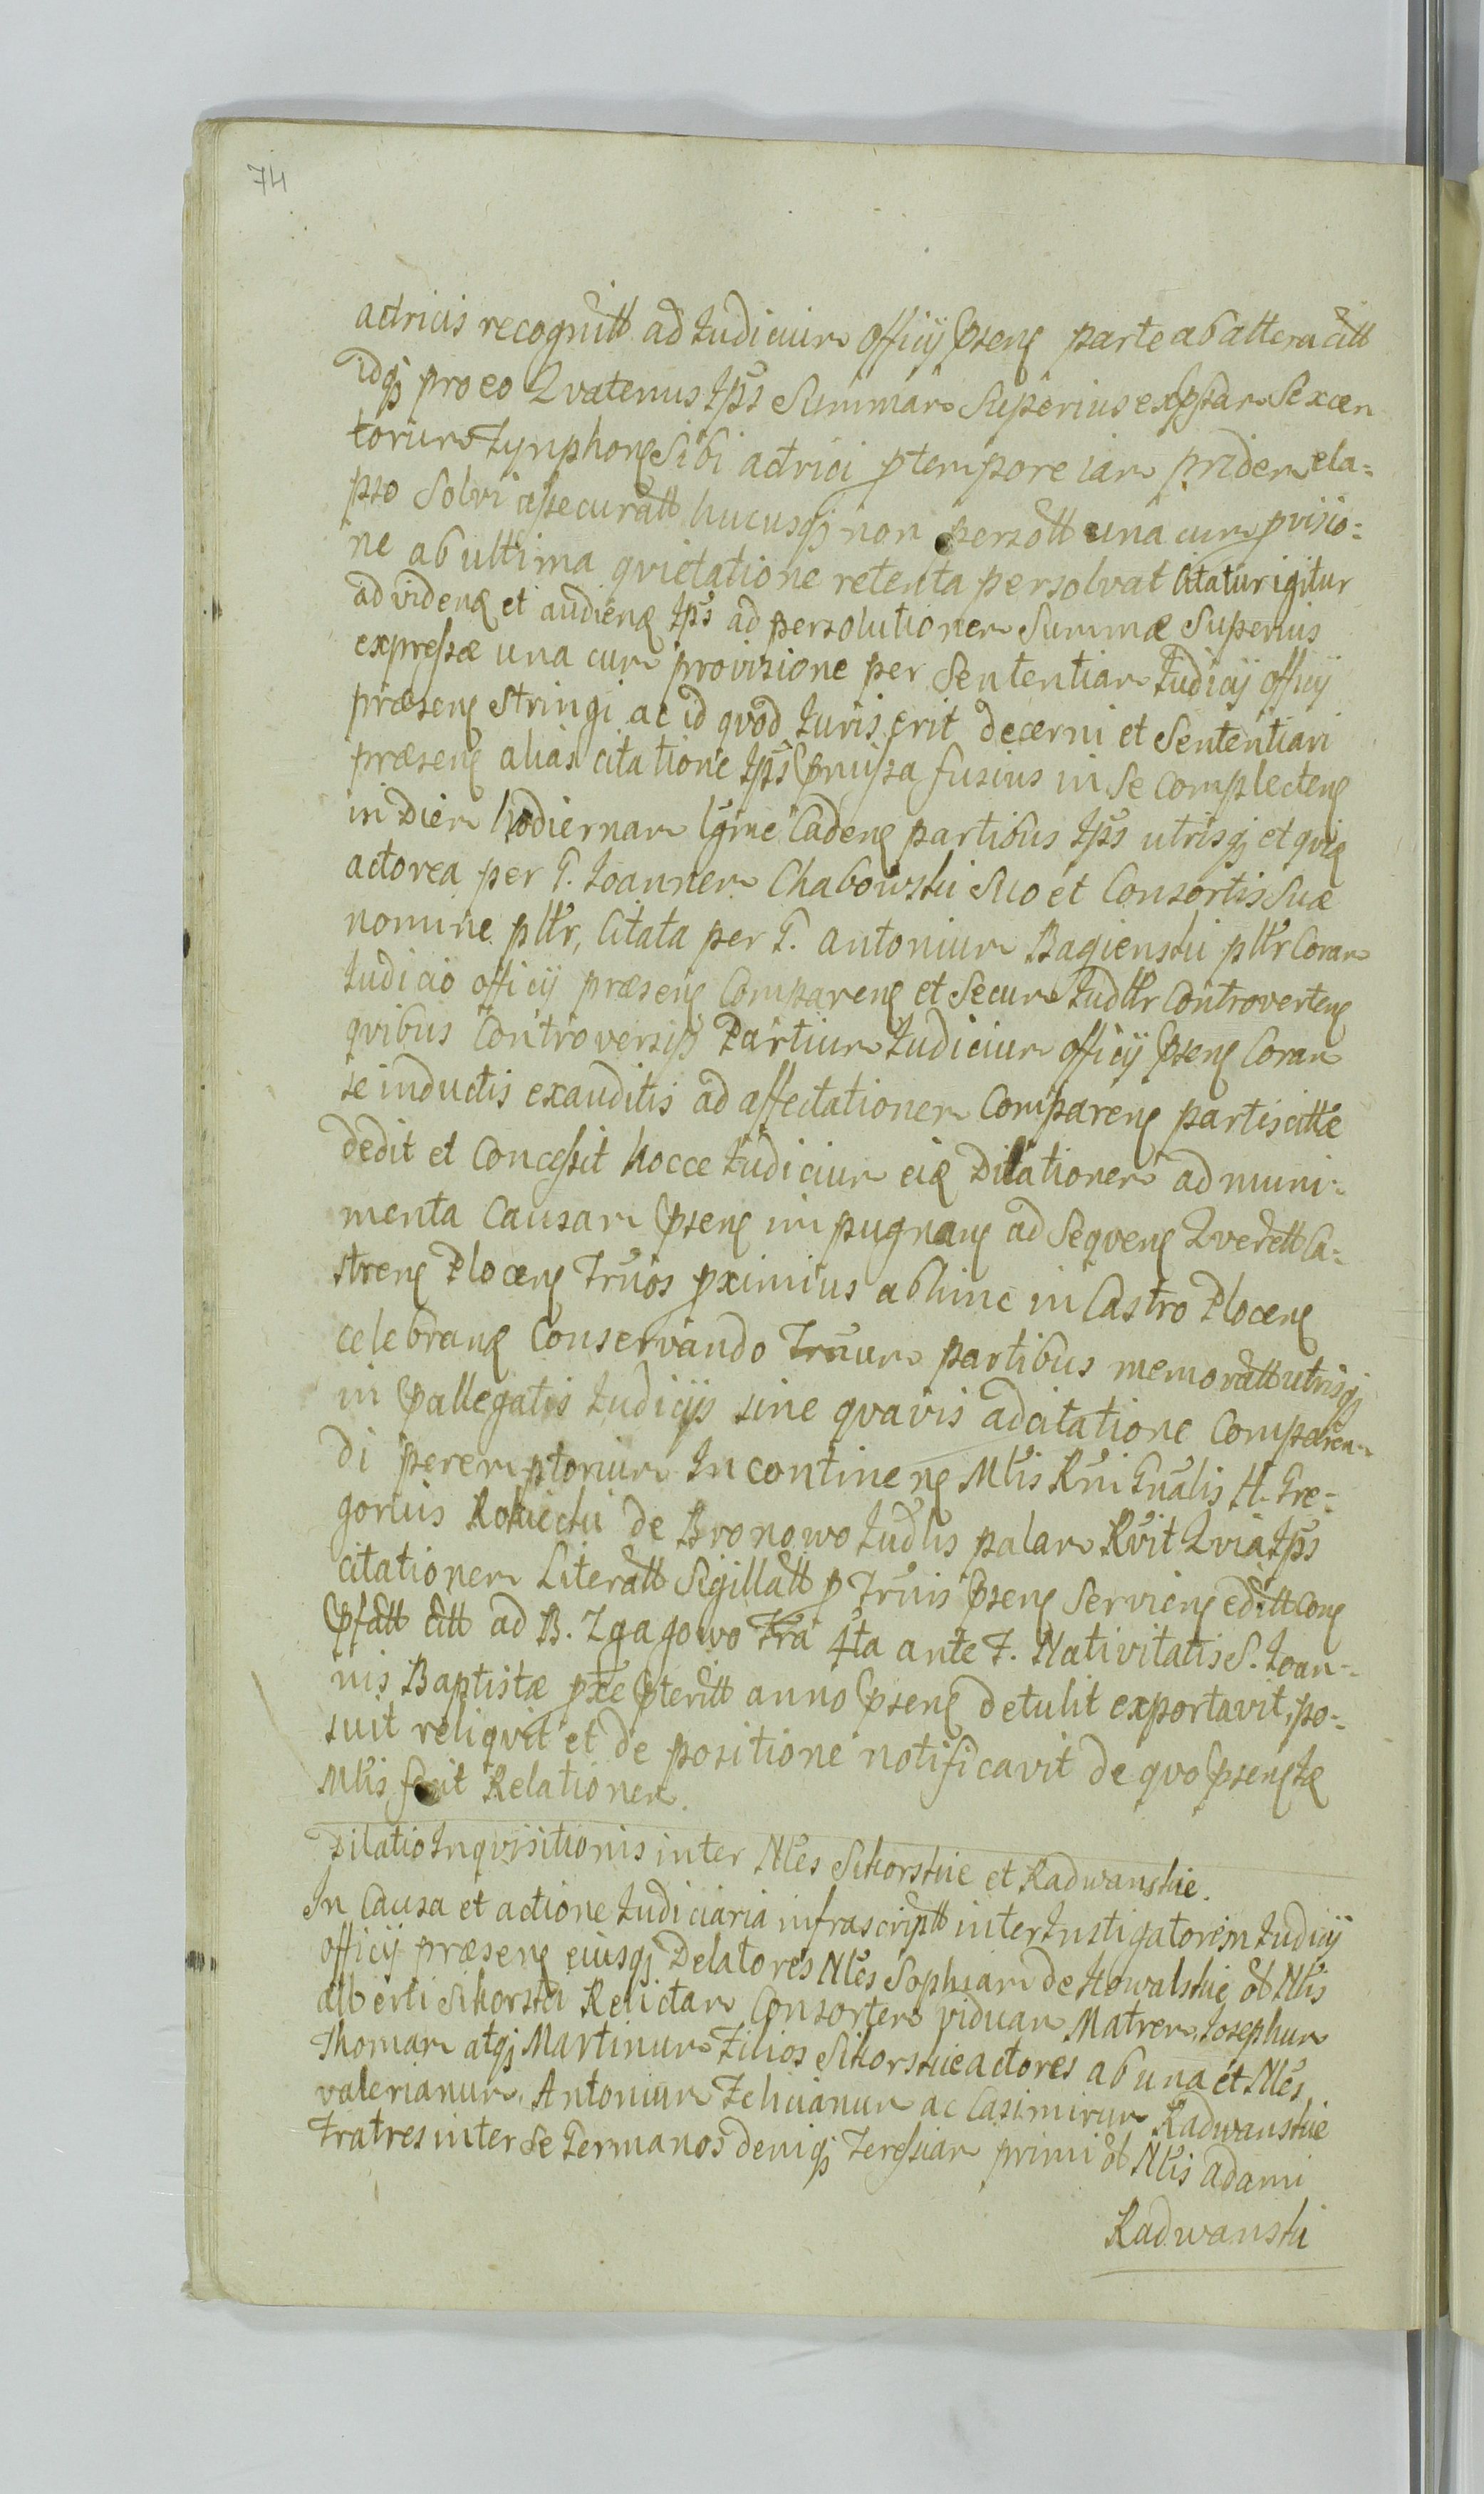 74
actricis recognitt ad Judicium Officij psens parte ab altera citt
idqȝ pro eo Qvatenus Ips Summam Superius expssam Sexcen
torum Tynphons Sibi actrici p tempore iam pridem ela=
pso Solvi assecuratt hucusqȝ non persoltt una cum pvisio=
ne ab ultima qvietatione retenta persolvat Citatur igitur
ad vidend et audiend Ips ad persolutionem Summæ Superius
expressæ una cum provizione per Sententiam Judicij Officij
præsens Stringi ac id qvod Juris erit decerni et Sententiari
præsens alias citatione Ips pmissa fusius in Se complectens
in Diem hodiernam lgme Cadens partibus Ips utrisqȝ et qvid
actorea per G. Joannem Chabowski Suo et Consortis Suæ
nomine pltr, Citata per G. antonium Bagienski pltr Coram
Judicio officij præsens Comparens et Secum Judltr Controvertens
qvibus Controversijs Partium Judicium Officij psens Coram
se inductis exauditis ad affectationem Comparens partis cittæ
dedit et Concessit hocce Judicium eid Dilationem ad muni=
menta Causam psens impugnans ad Seqvens Qverett Ca=
strens Plocens Trnos pximius abhinc in Castro Plocens
celebrand Conservando Trnum partibus memoratt utrisqȝ
in pallegatis Judicijs sine qvavis adcitatione Comparen=
di peremptorium In continens Mtlis Rni Gnalis H. Gre=
gorius Rokicki de Bronowo Judlis palam Rvit Qvia Ips
citationem Literatt Sigillatt p Trnis psens Serviens editt Cons
pfatt citt ad B. Zgagowo Fra 4ta ante F. Nativitatis S. Joan=
nis Baptistæ pxe pteritt anno psens detulit exportavit, po=
suit reliqvit et de positione notificavit de qvo psens Id
Mtlis fecit Relationem.
Dilatio Inqvisitionis inter Nles Sikorskie et Radwanskie.
In Causa et actione Judiciaria infrascriptt inter Instigatorem Judicij
officij præsens eiusqȝ Delatores Nles Sophiam de Kowalskie ol Nlis
alberti Sikorski Relictam Consortem viduam Matrem, Josephum
Thomam atqȝ Martinum Filios Sikorskie actores ab una et Nles
valerianum, Antonium Felicianum ac Casimirum Radwanskie
Fratres inter Se Germanos deniqȝ Teressiam primi ol Nlis adami
Radwanski